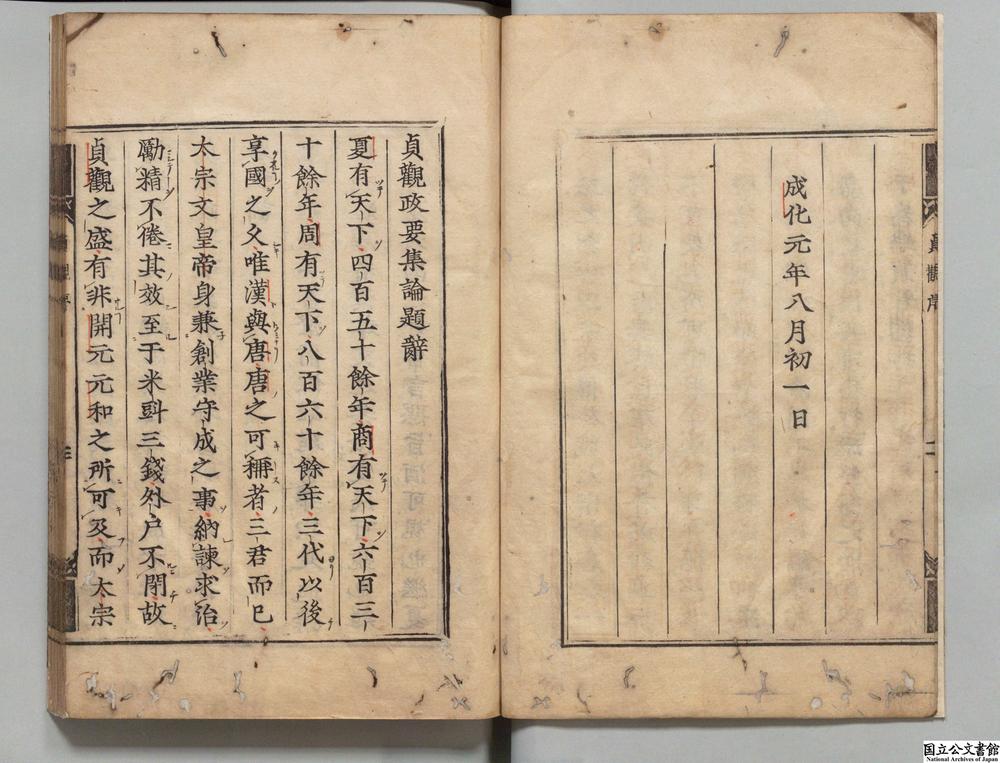 成化元年八月初一日
貞觀政要集論題辭
夏有天下四百五十餘年商有天下六百三
十餘年周有天下八百六十餘年三代以後
享國之久唯漢與唐唐之可稱者三君而已
太宗文皇帝身兼創業守成之事納諫求治
勵精不倦其效至于米㪷三錢外户不閉故
貞觀之盛有非開元元和之所可及而太宗
国立公文書館
National Archives of Japan